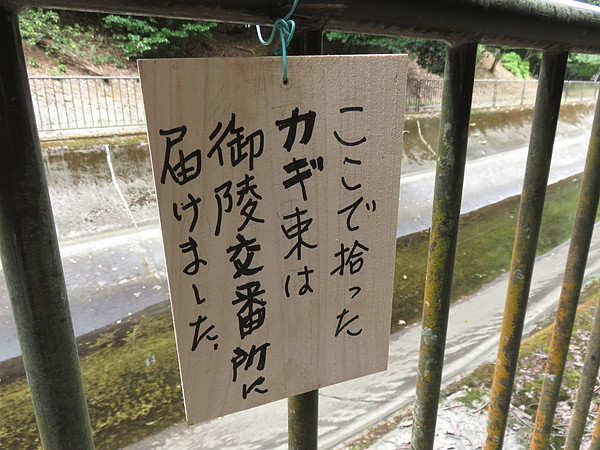 ここで拾った
カギ束は
御陵交番所に
届けました.